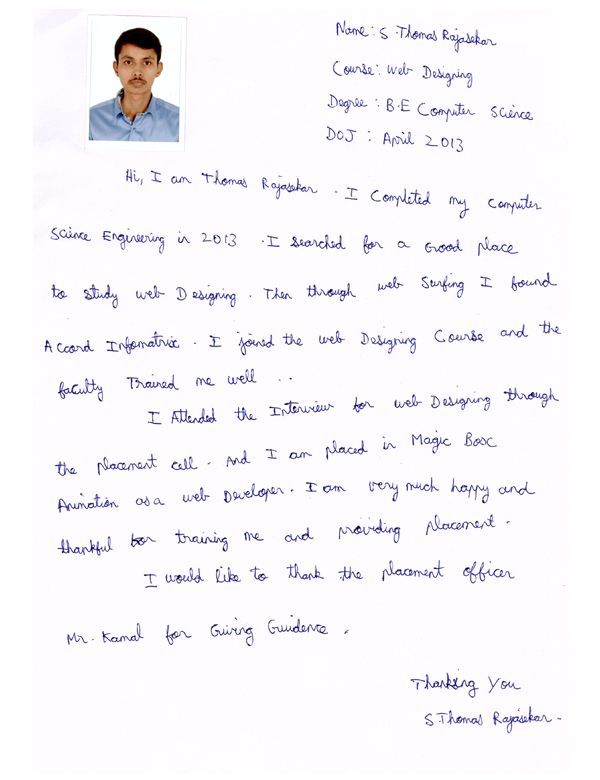 Name: S. Thomas Rajasekar
Course: Web Designing
Degree: B.E Computer Science
DOJ : April 2013
Hi, I am Thomas Rajasekar. I Completed my Computer
Science Engineering in 2013. I searched for a Good place
to study web Designing. Then through web Surfing I found
Accord Infomatrix. I joined the web Designing Course and the
faculty Trained me well ..
I Attended the Interview for web Designing through
the placement cell. And I am placed in Magic Box
Animation as a web Developer. I am very much happy and
thankful for training me and providing placement.
I would like to thank the placement officer
Mr. Kamal for Giving Guidence.
Thanking You
S.Thomas Rajasekar.